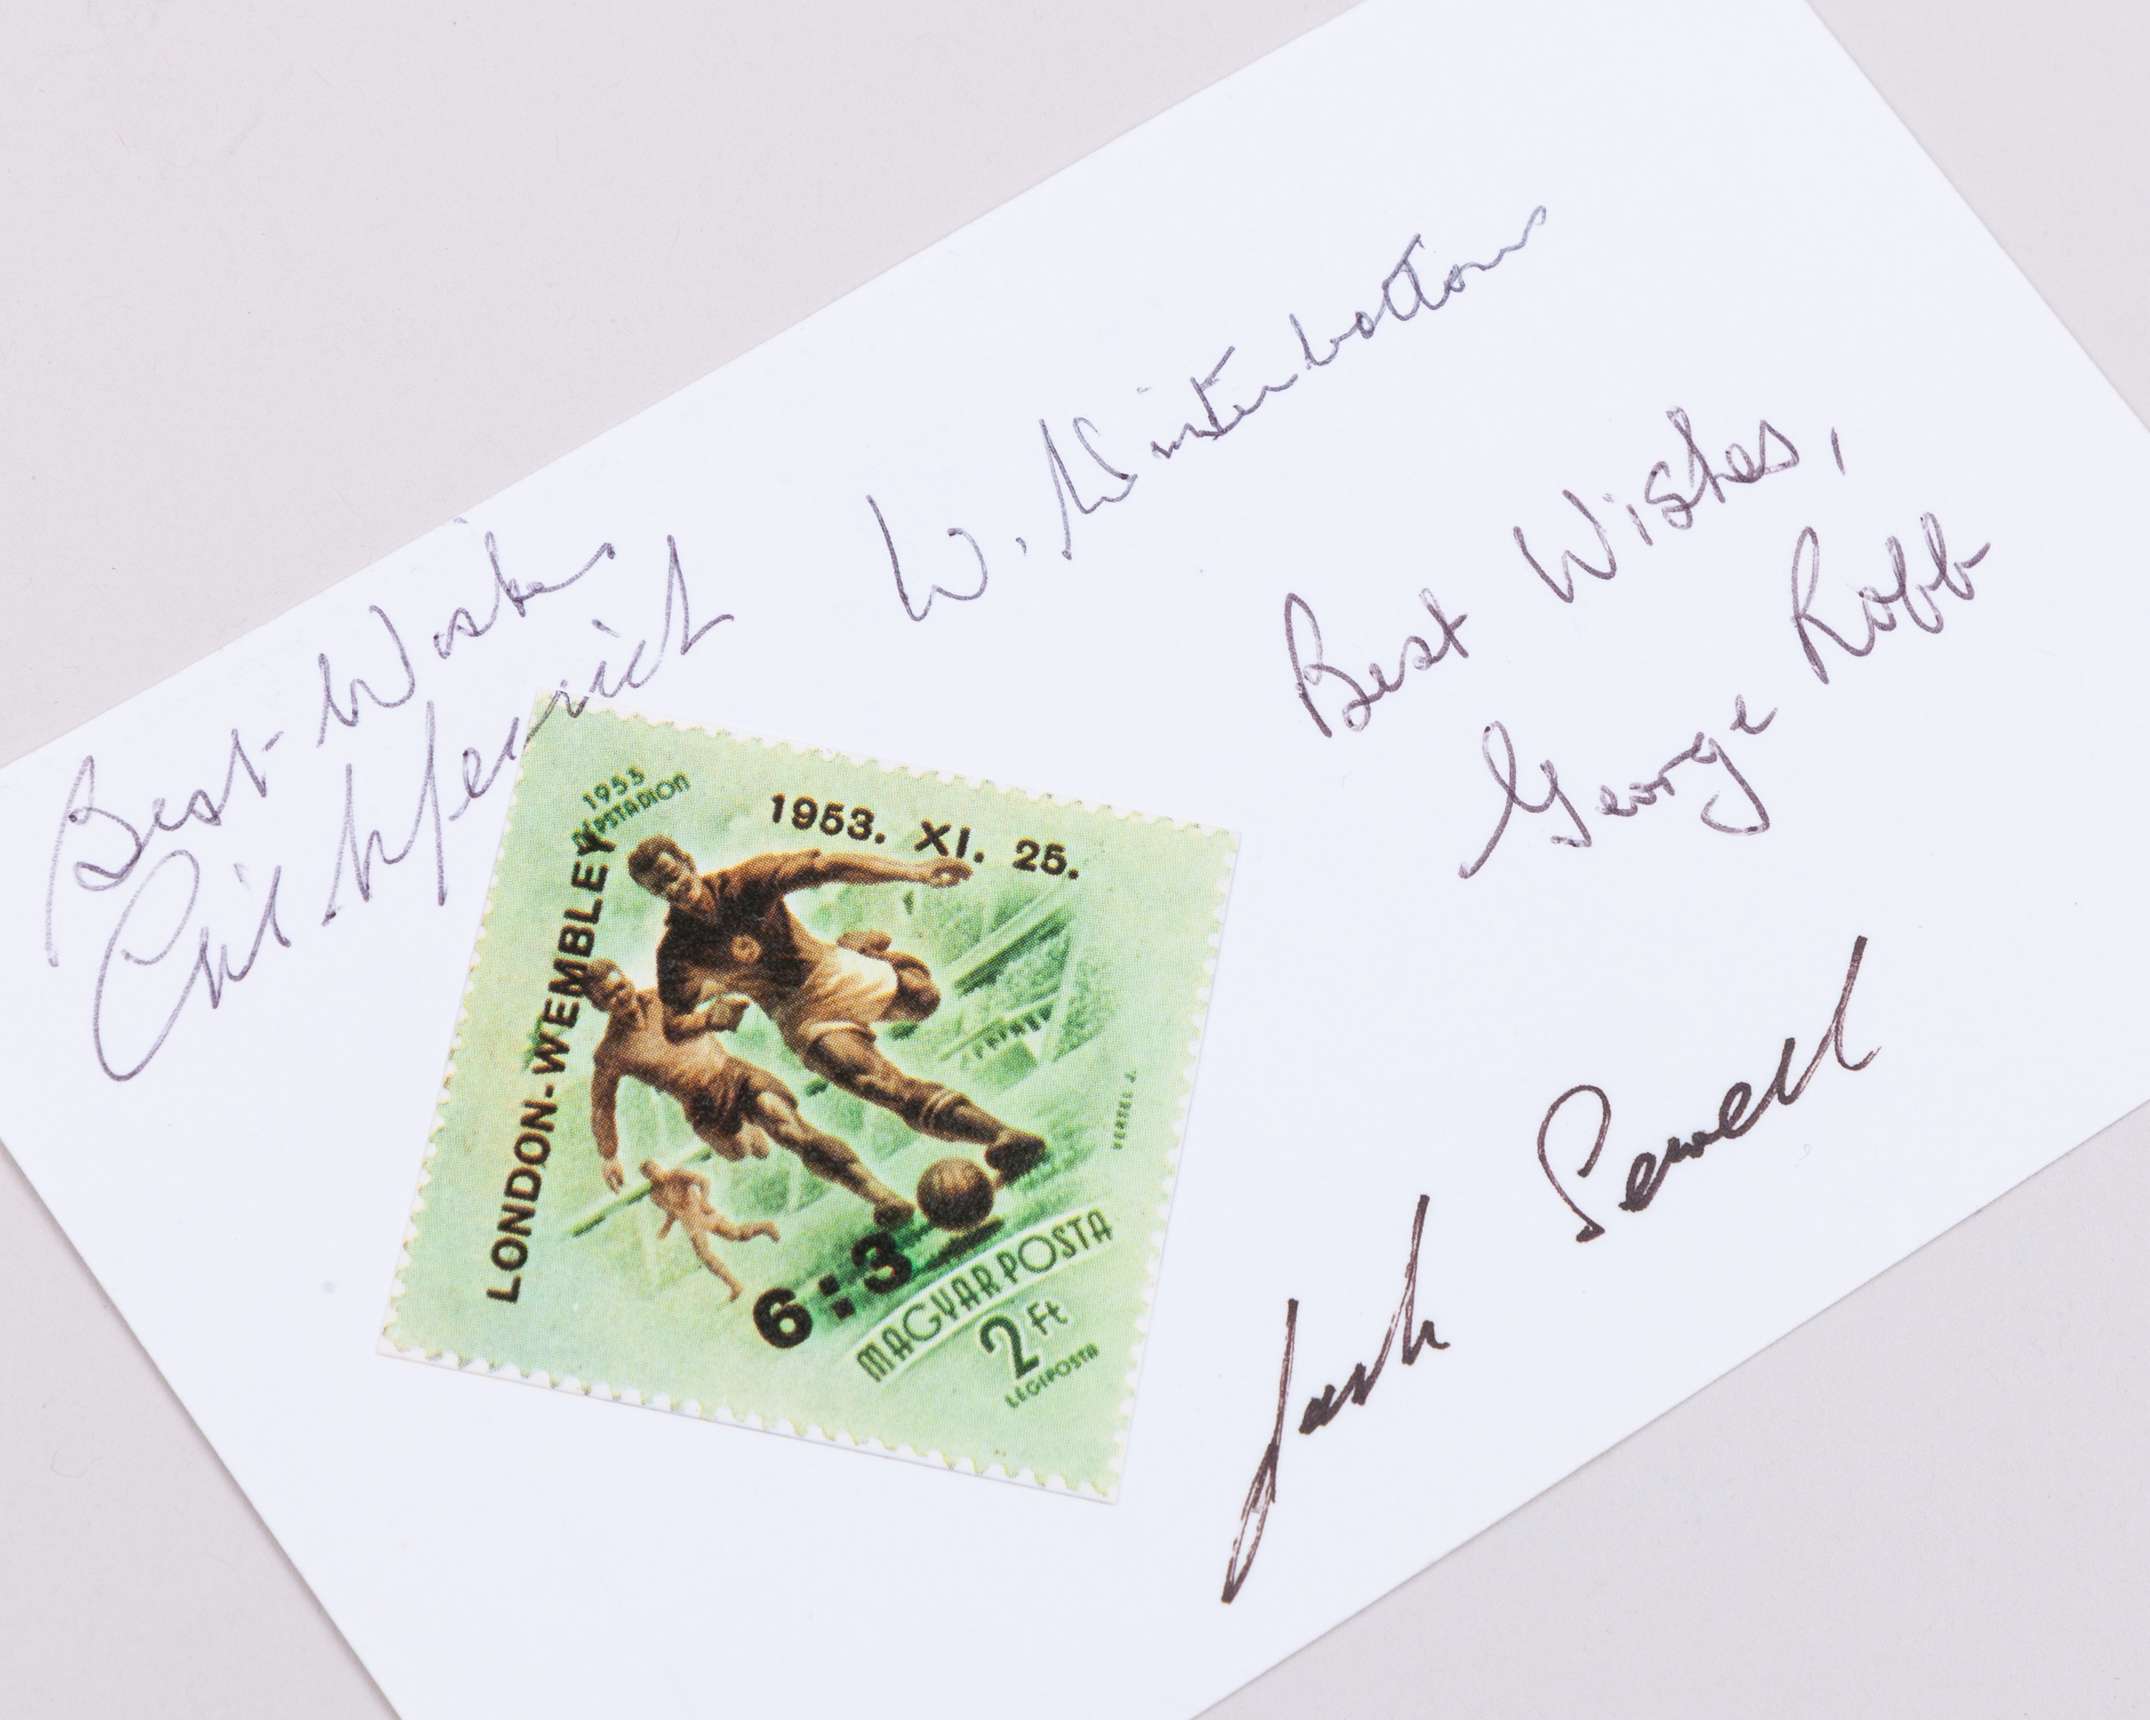 Best Wishes
Gil Merrick
W. Winterbottom
Best Wishes,
George Robb
Jack Sewell
1953
NÉPSTADION
1953. XI. 25.
LONDON-WEMBLEY
6:3
MAGYAR POSTA
2 Ft
LÉGIPOSTA
VERTEL J.